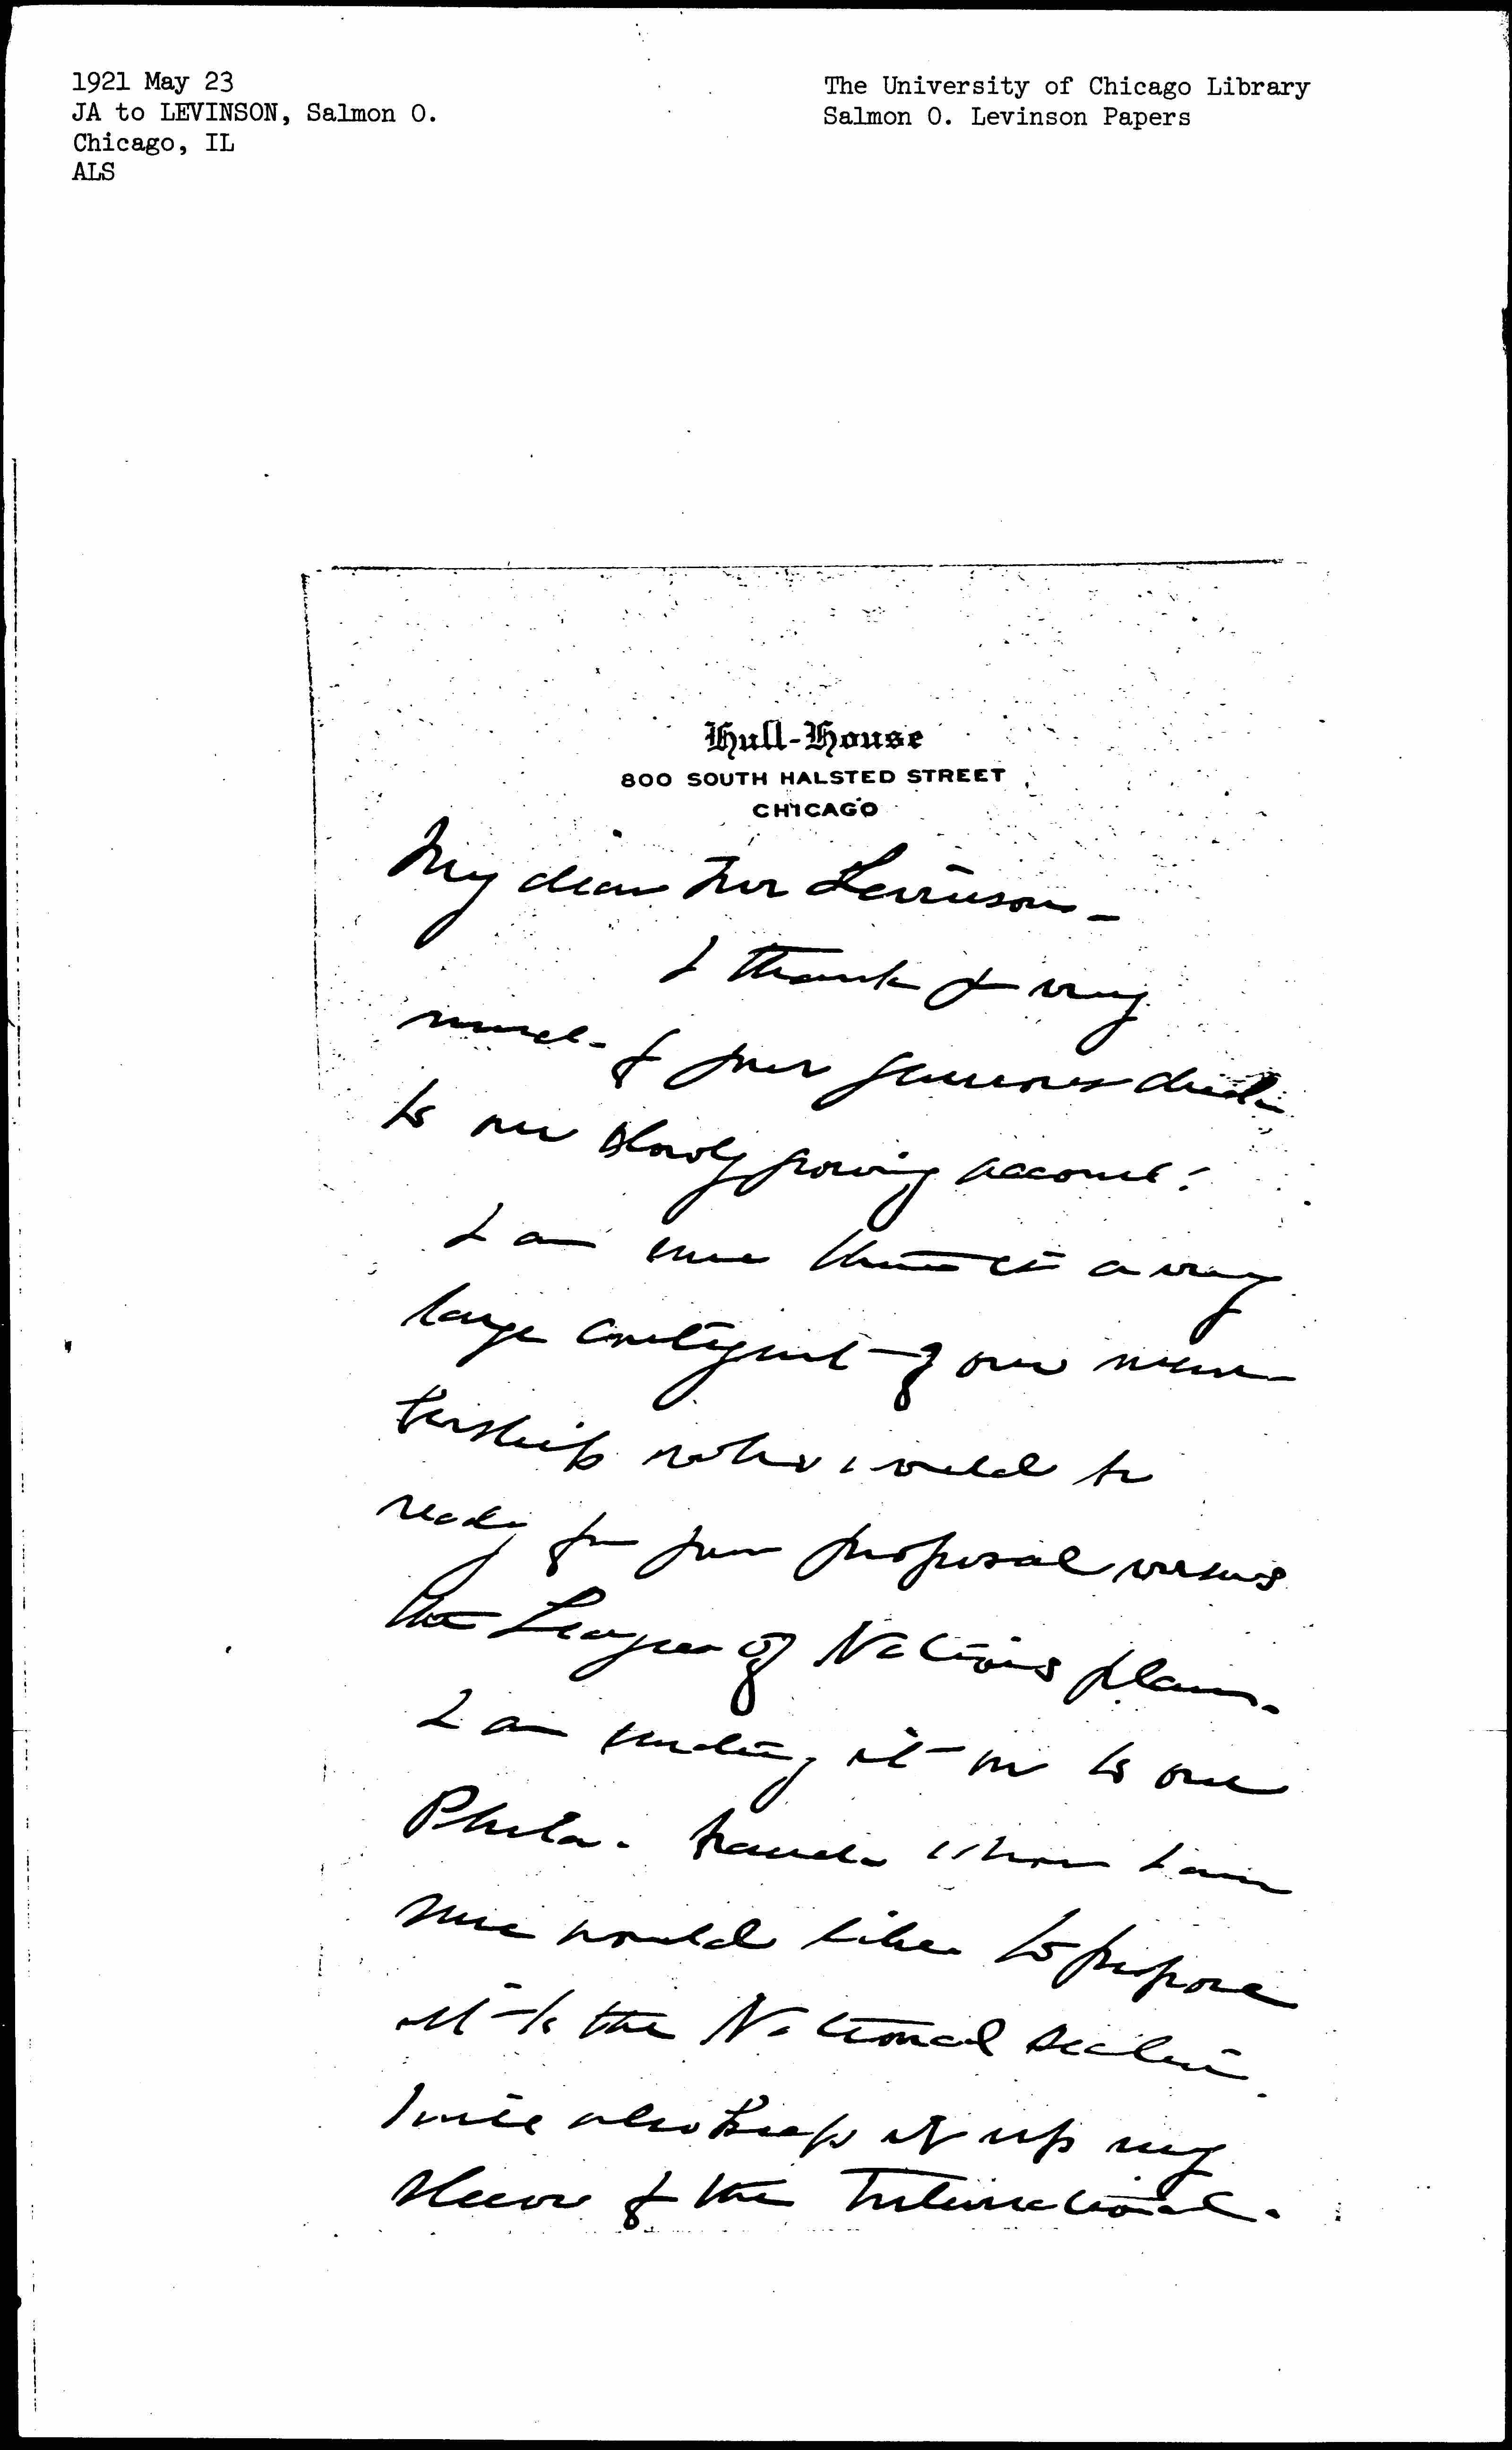 1921 May 23
JA to LEVINSON, Salmon O.
Chicago, IL
ALS
The University of Chicago Library
Salmon O. Levinson Papers
Hull-House
800 SOUTH HALSTED STREET
CHICAGO
My dear Mr Levinson –
I thank you very
much for your generous
to our slowly growing account!
I am sure there is a very
large contingent of our mem
bership who would be
ready for your proposal versus
the League of Nations plan.
I am sending it on to our
Phila. branch whom I am
sure would like to propose
it to the National Section
I will also keep it up my
sleeve for the International.